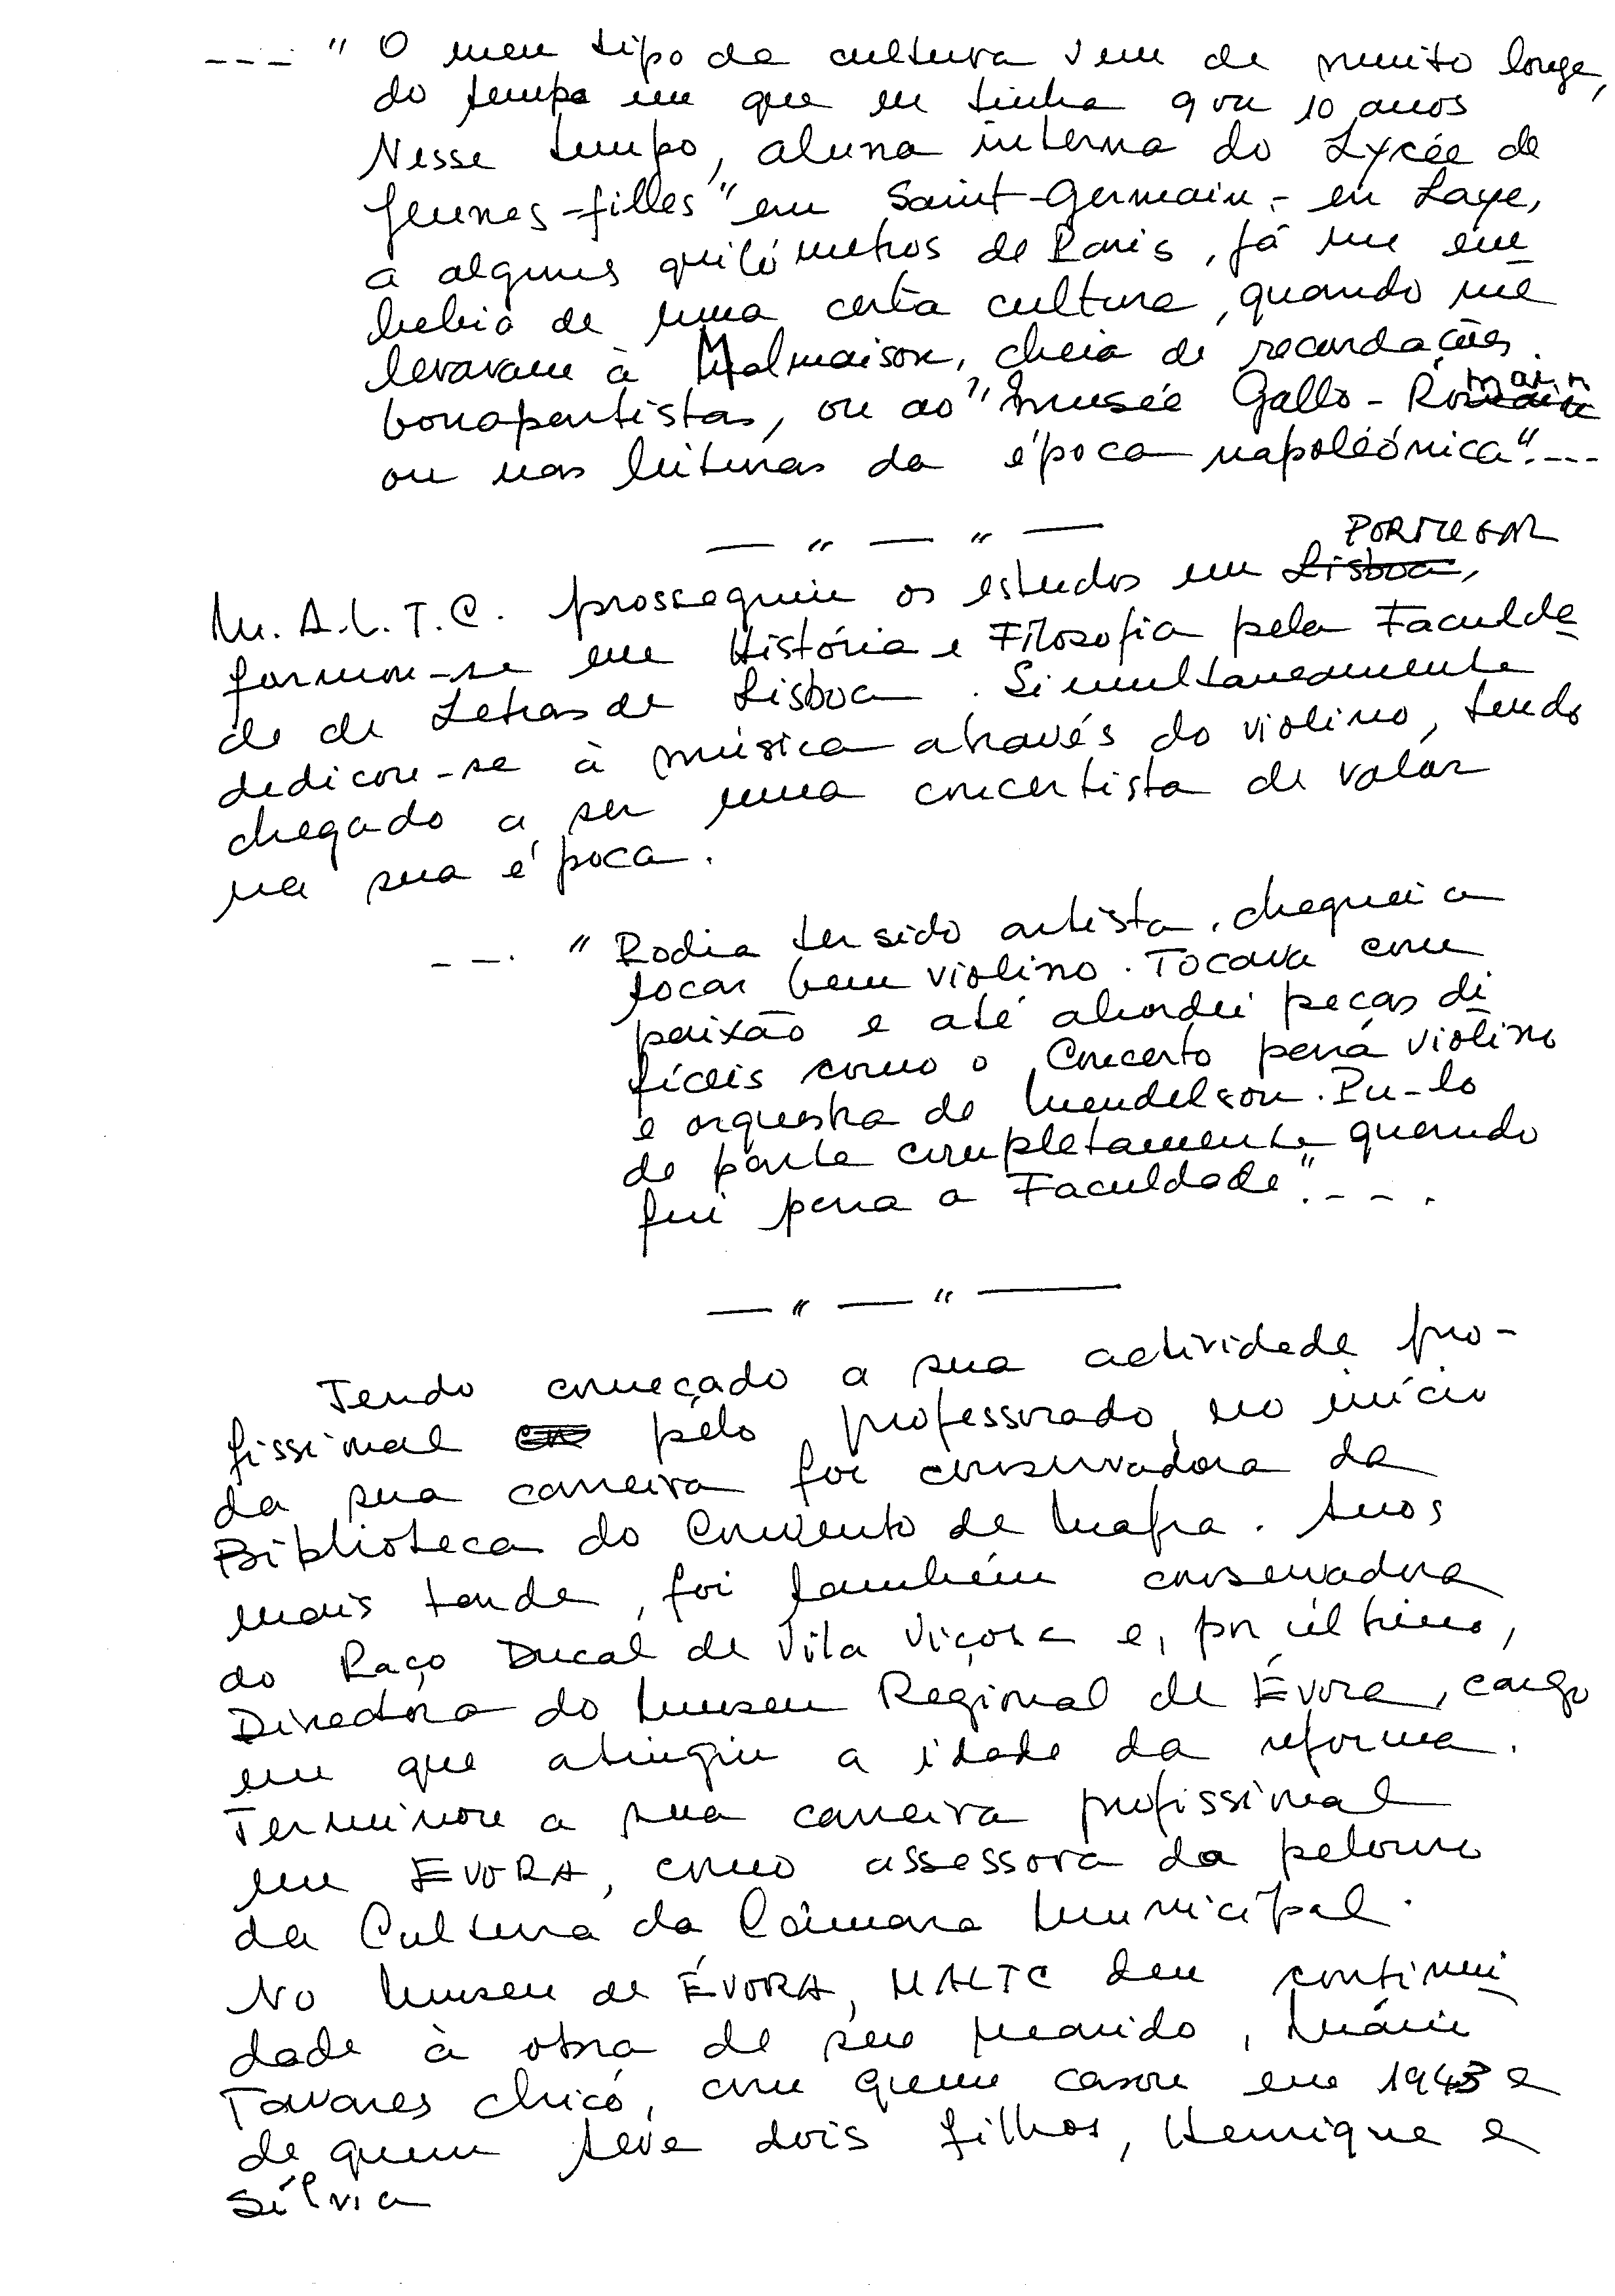 --- " O meu tipo de cultura vem de muito longe,
do tempo em que eu tinha 9 ou 10 anos
Nesse tempo, aluna interna do Lycée de
Jeunes-filles" em Saint-Germain-en Laye,
a alguns quilómetros de Paris, já me em
bebia de uma certa cultura, quando me
levavam à Malmaison, cheia de recordações
bonapartistas, ou ao "Musée Gallo-Romain
ou nas leituras da época napoleónica".---
— " — " —
PORTUGAL
M.A.L.T.C. prosseguiu os estudos em Lisboa,
formou-se em História e Filosofia pela Faculda
de de Letras de Lisboa. Simultaneamente
dedicou-se à música através do violino, tendo
chegado a ser uma concertista de valor
na sua época.
--. " Podia ter sido artista, cheguei a
tocar bem violino. Tocava com
paixão e até abordei peças di
fíceis como o Concerto para violino
e orquestra de Mendelson. Pu-lo
de parte completamente quando
fui para a Faculdade".--.
— " — " —
Tendo começado a sua actividade pro-
fissional pelo professorado, no início
da sua carreira foi conservadora da
Biblioteca do Convento de Mafra. Anos
mais tarde, foi também conservadora
do Paço Ducal de Vila Viçosa e, por último,
Directora do Museu Regional de Évora, cargo
em que atingiu a idade da reforma.
Terminou a sua carreira profissional
em EVORA, como assessora do pelouro
da Cultura da Câmara Municipal.
No Museu de ÉVORA, MALTC deu continui
dade à obra de seu marido, Mário
Tavares Chicó, com quem casou em 1943 e
de quem teve dois filhos, Henrique e
Sílvia